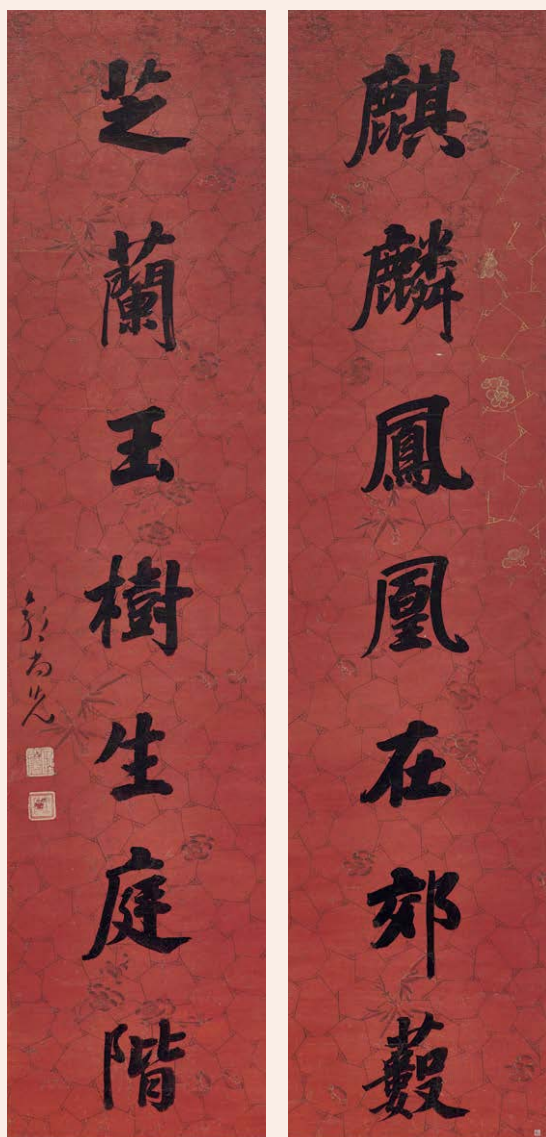 麒麟鳳凰在郊藪
芝蘭玉樹生庭階
郭尚先